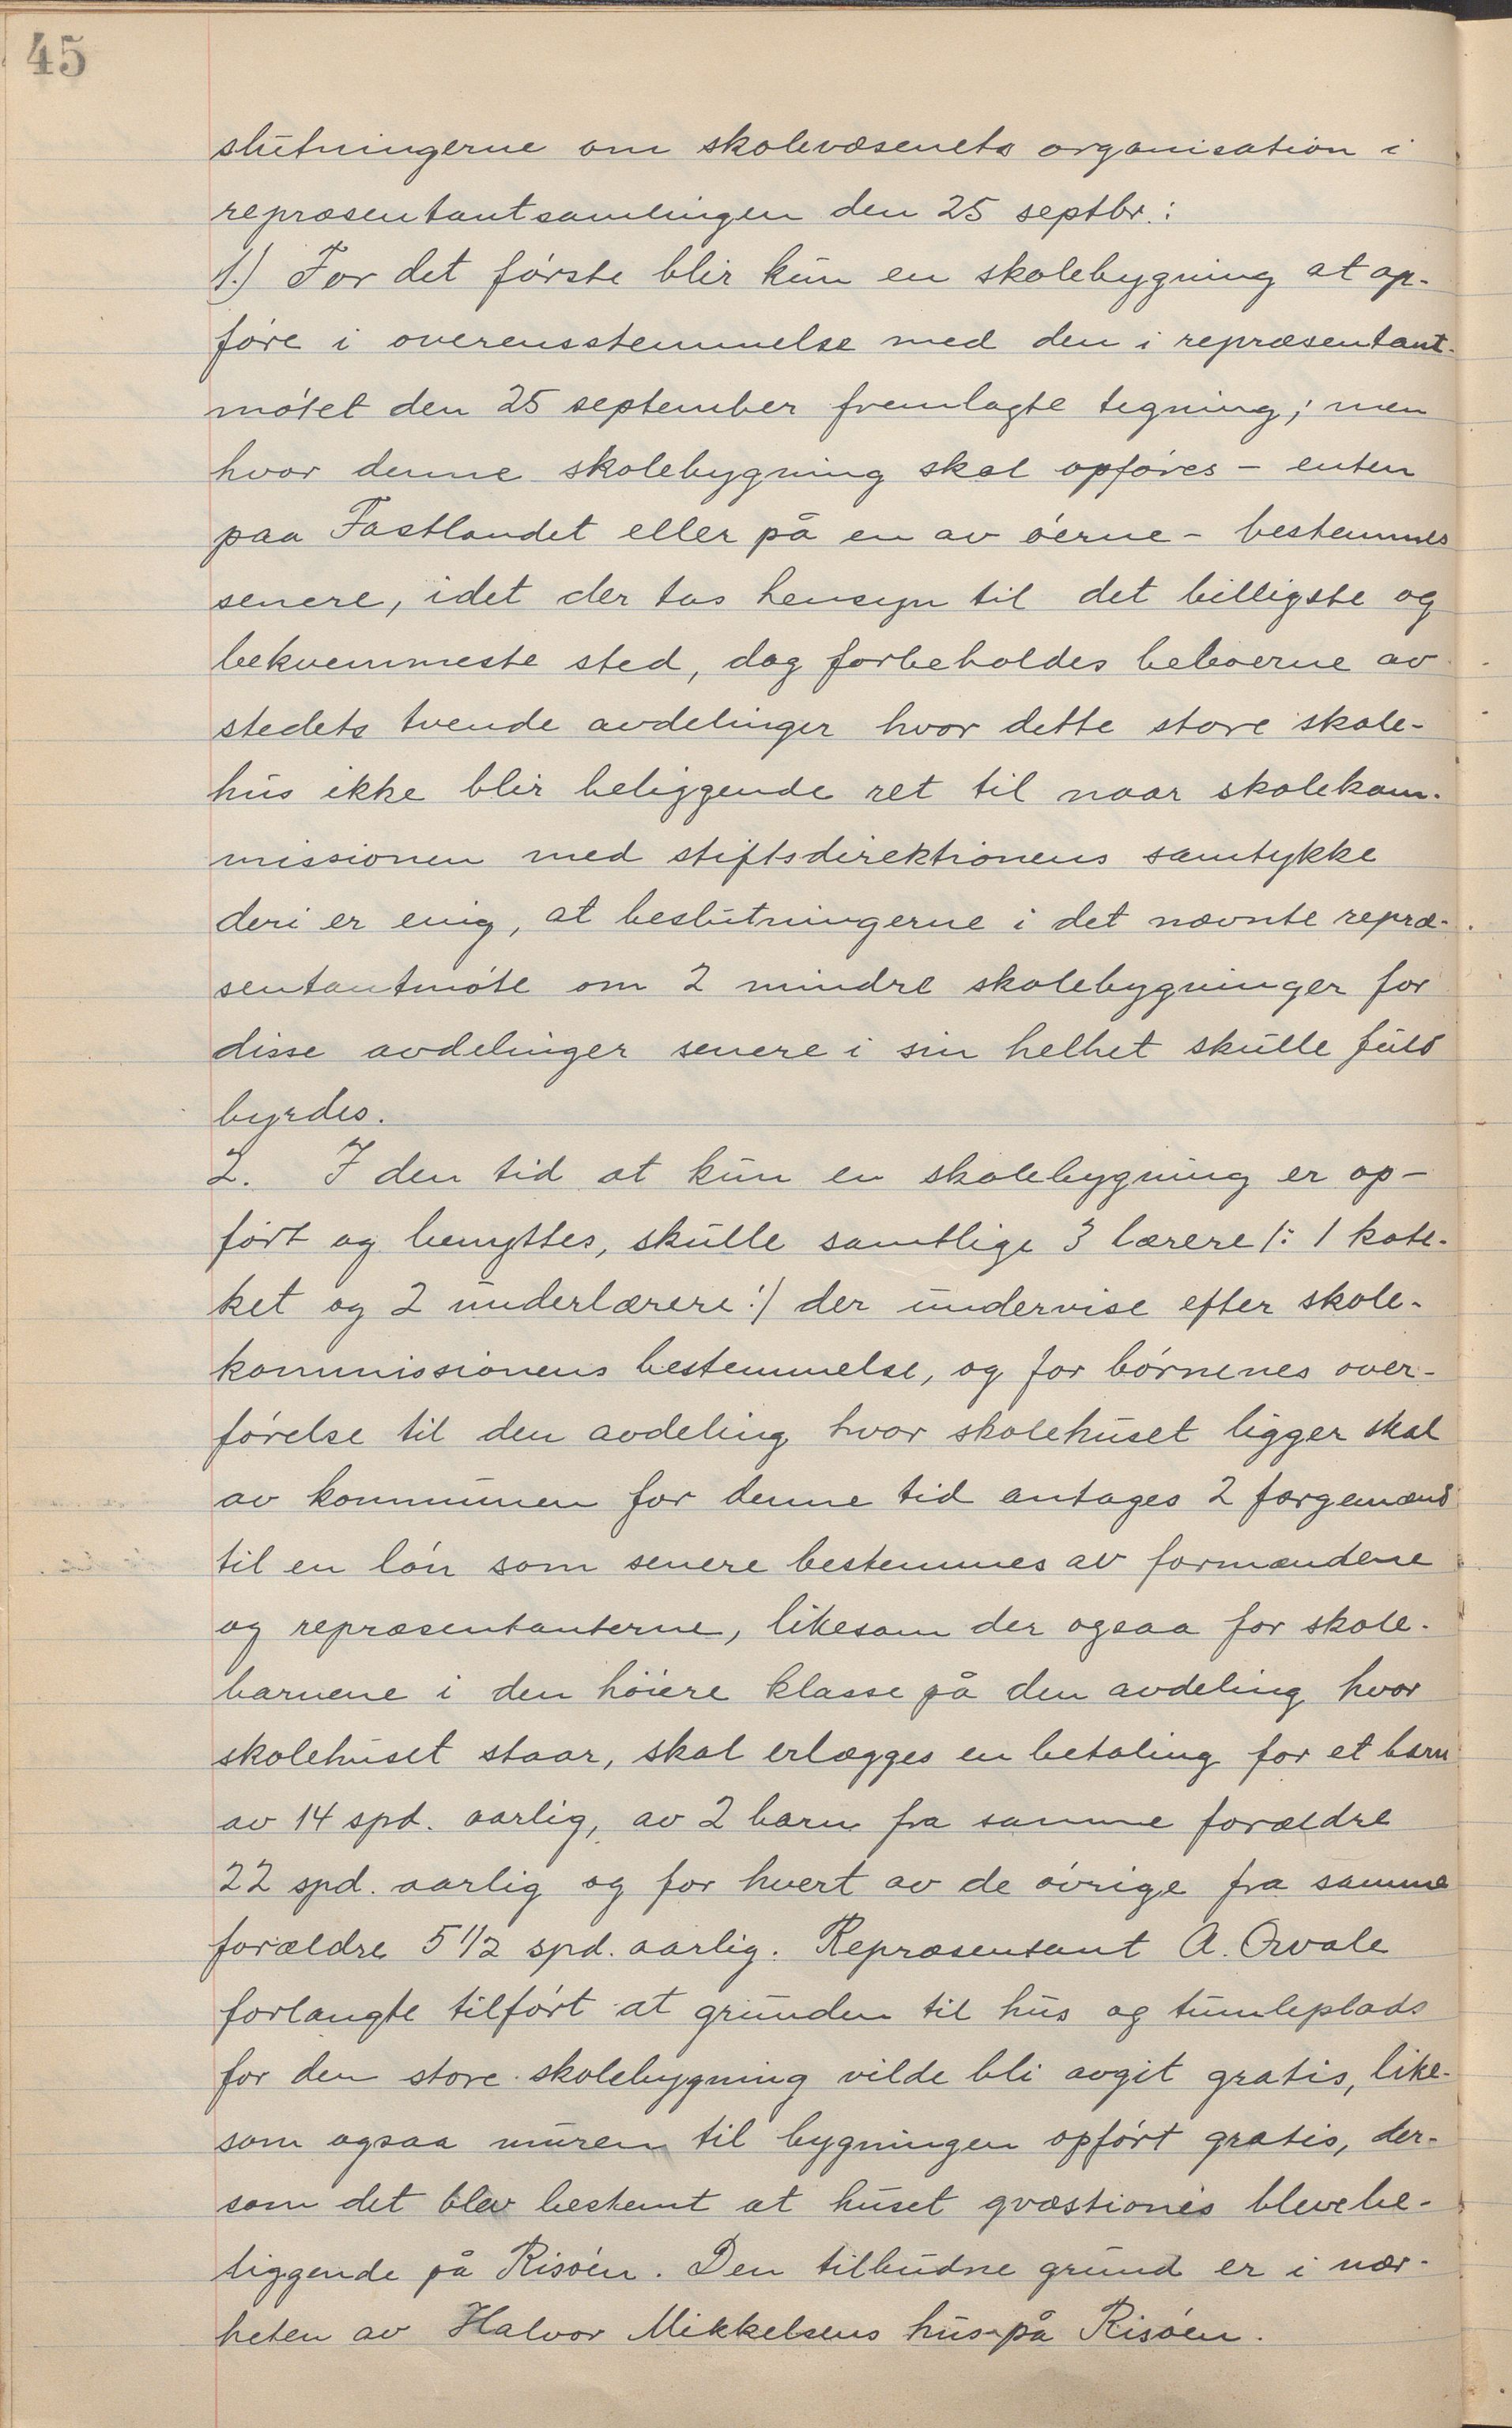 45
slutningerne om skolevæsenets organisation i
repræsentantsamlingen den 25 septbr.:
1.) For det første blir kun en skolebygning at op-
føre i overensstemmelse med den i repræsentant-
møtet den 25 september fremlagte tegning; men
hvor denne skolebygning skal opføres - enten
paa Fastlandet eller på en av øerne - bestemmes
senere, idet der tas hensyn til det billigste og
bekvemmeste sted, dog forbeholdes beboerne av
stedets tvende avdelinger hvor dette store skole-
hus ikke blir beliggende ret til naar skolekom-
missionen med stiftsdirektionens samtykke
deri er enig, at beslutningerne i det nævnte repræ-
sentantmøte om 2 mindre skolebygninger for
disse avdelinger senere i sin helhet skulle fuld
byrdes.
2. I den tid at kun en skolebygning er op-
ført og benyttes, skulle samtlige 3 lærere /: 1 kate-
ket og 2 underlærere :/ der undervise efter skole-
kommissionens bestemmelse, og for børnenes over-
førelse til den avdeling hvor skolehuset ligger skal
av kommunen for denne tid antages 2 færgemænd
til en løn som senere bestemmes av formændene
og repræsentanterne, likesom der ogsaa for skole-
barnene i den høiere klasse på den avdeling hvor
skolehuset staar, skal erlægges en betaling for et barn
av 14 spd. aarlig, av 2 barn fra samme forældre
22 spd. aarlig og for hvert av de øvrige fra samme
forældre 5 1/2 spd. aarlig. Repræsentant A. Qvale
forlangte tilført at grunden til hus og tumleplads
for den store skolebygning vilde bli avgit gratis, like-
som ogsaa muren til bygningen opført gratis, der-
som det blev bestemt at huset qvæstionis bleve be-
liggende på Risøen. Den tilbudne grund er i nær-
heten av Halvor Mikkelsens hus på Risøen.